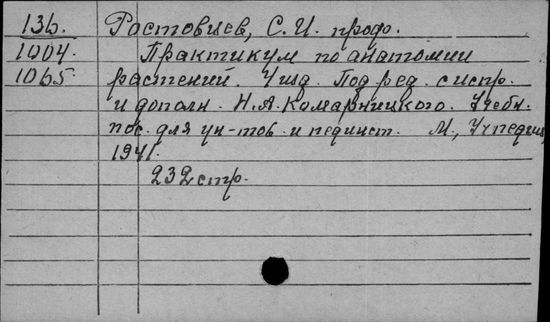 13б. Ростовцев, С. И. проф.
1004. Практикум по анатомии
1065 растений. 4 изд. Под ред. с испр.
и дополн. Н. А. Комарницкого. Учебн.
пос. для ун-тов и пединст. М., Учпедгиз,
1941.
232 стр.